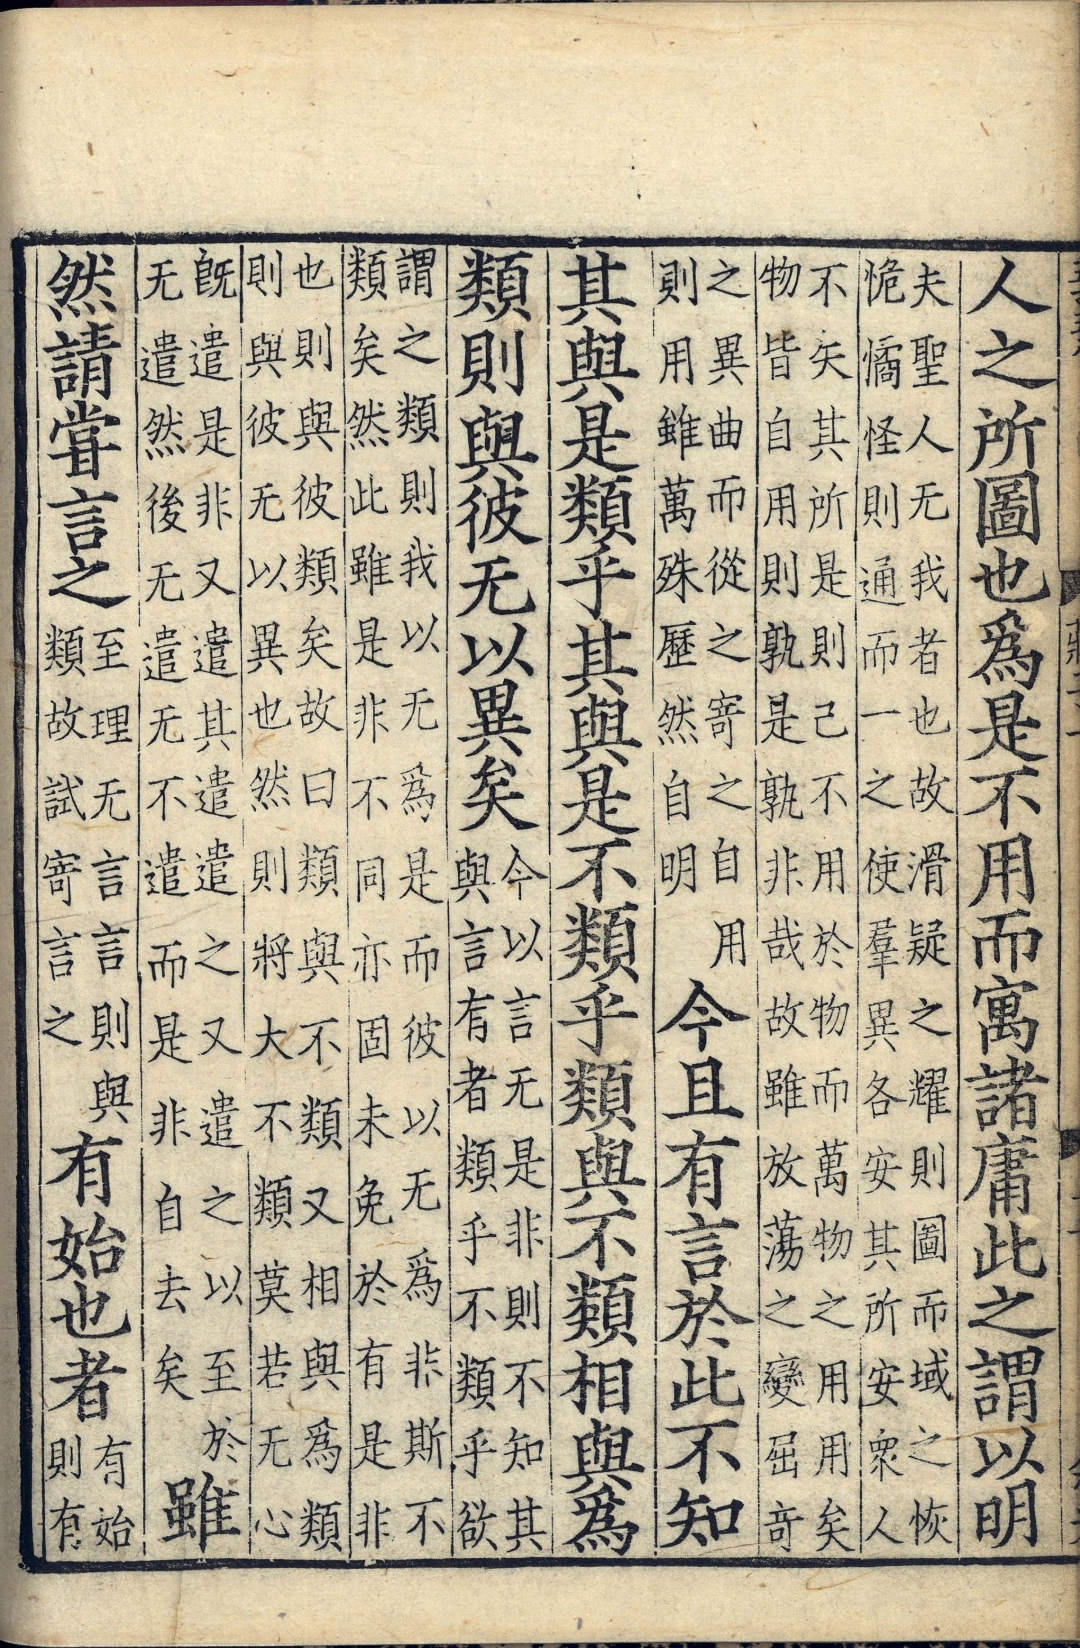 人之所圖也爲是不用而寓諸庸此之謂以明
夫聖人无我者也故滑疑之耀則圖而域之恢
恑憰怪則通而一之使羣異各安其所安衆人
不矢其所是則己不用於物而萬物之用用矣
物皆自用則孰是孰非哉故雖放蕩之變屈奇
之異曲而從之寄之自用
則用雖萬殊歷然自明
今且有言於此不知
其與是類乎其與是不類乎類與不類相與爲
類則與彼无以異矣
今以言无是非則不知其
與言有者類乎不類乎欲
謂之類則我以无爲是而彼以无爲非斯不
類矣然此雖是非不同亦固未免於有是非
也則與彼類矣故曰類與不類又相與爲類
則與彼无以異也然則將大不類莫若无心
旣遣是非又遣其遣遣之又遣之以至於
无遣然後无遣无不遣而是非自去矣
雖
然請甞言之
至理无言言則與
類故試寄言之
有始也者
有始
則有